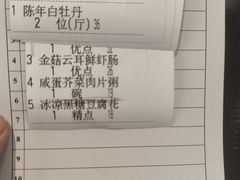 1 陈年白牡丹
2 位(厅) 36
1 优点
3 金菇云耳鲜虾肠
优点
4 咸蛋芥菜肉片粥
1 碗
5 冰凉黑糖豆腐花
1 精点
10